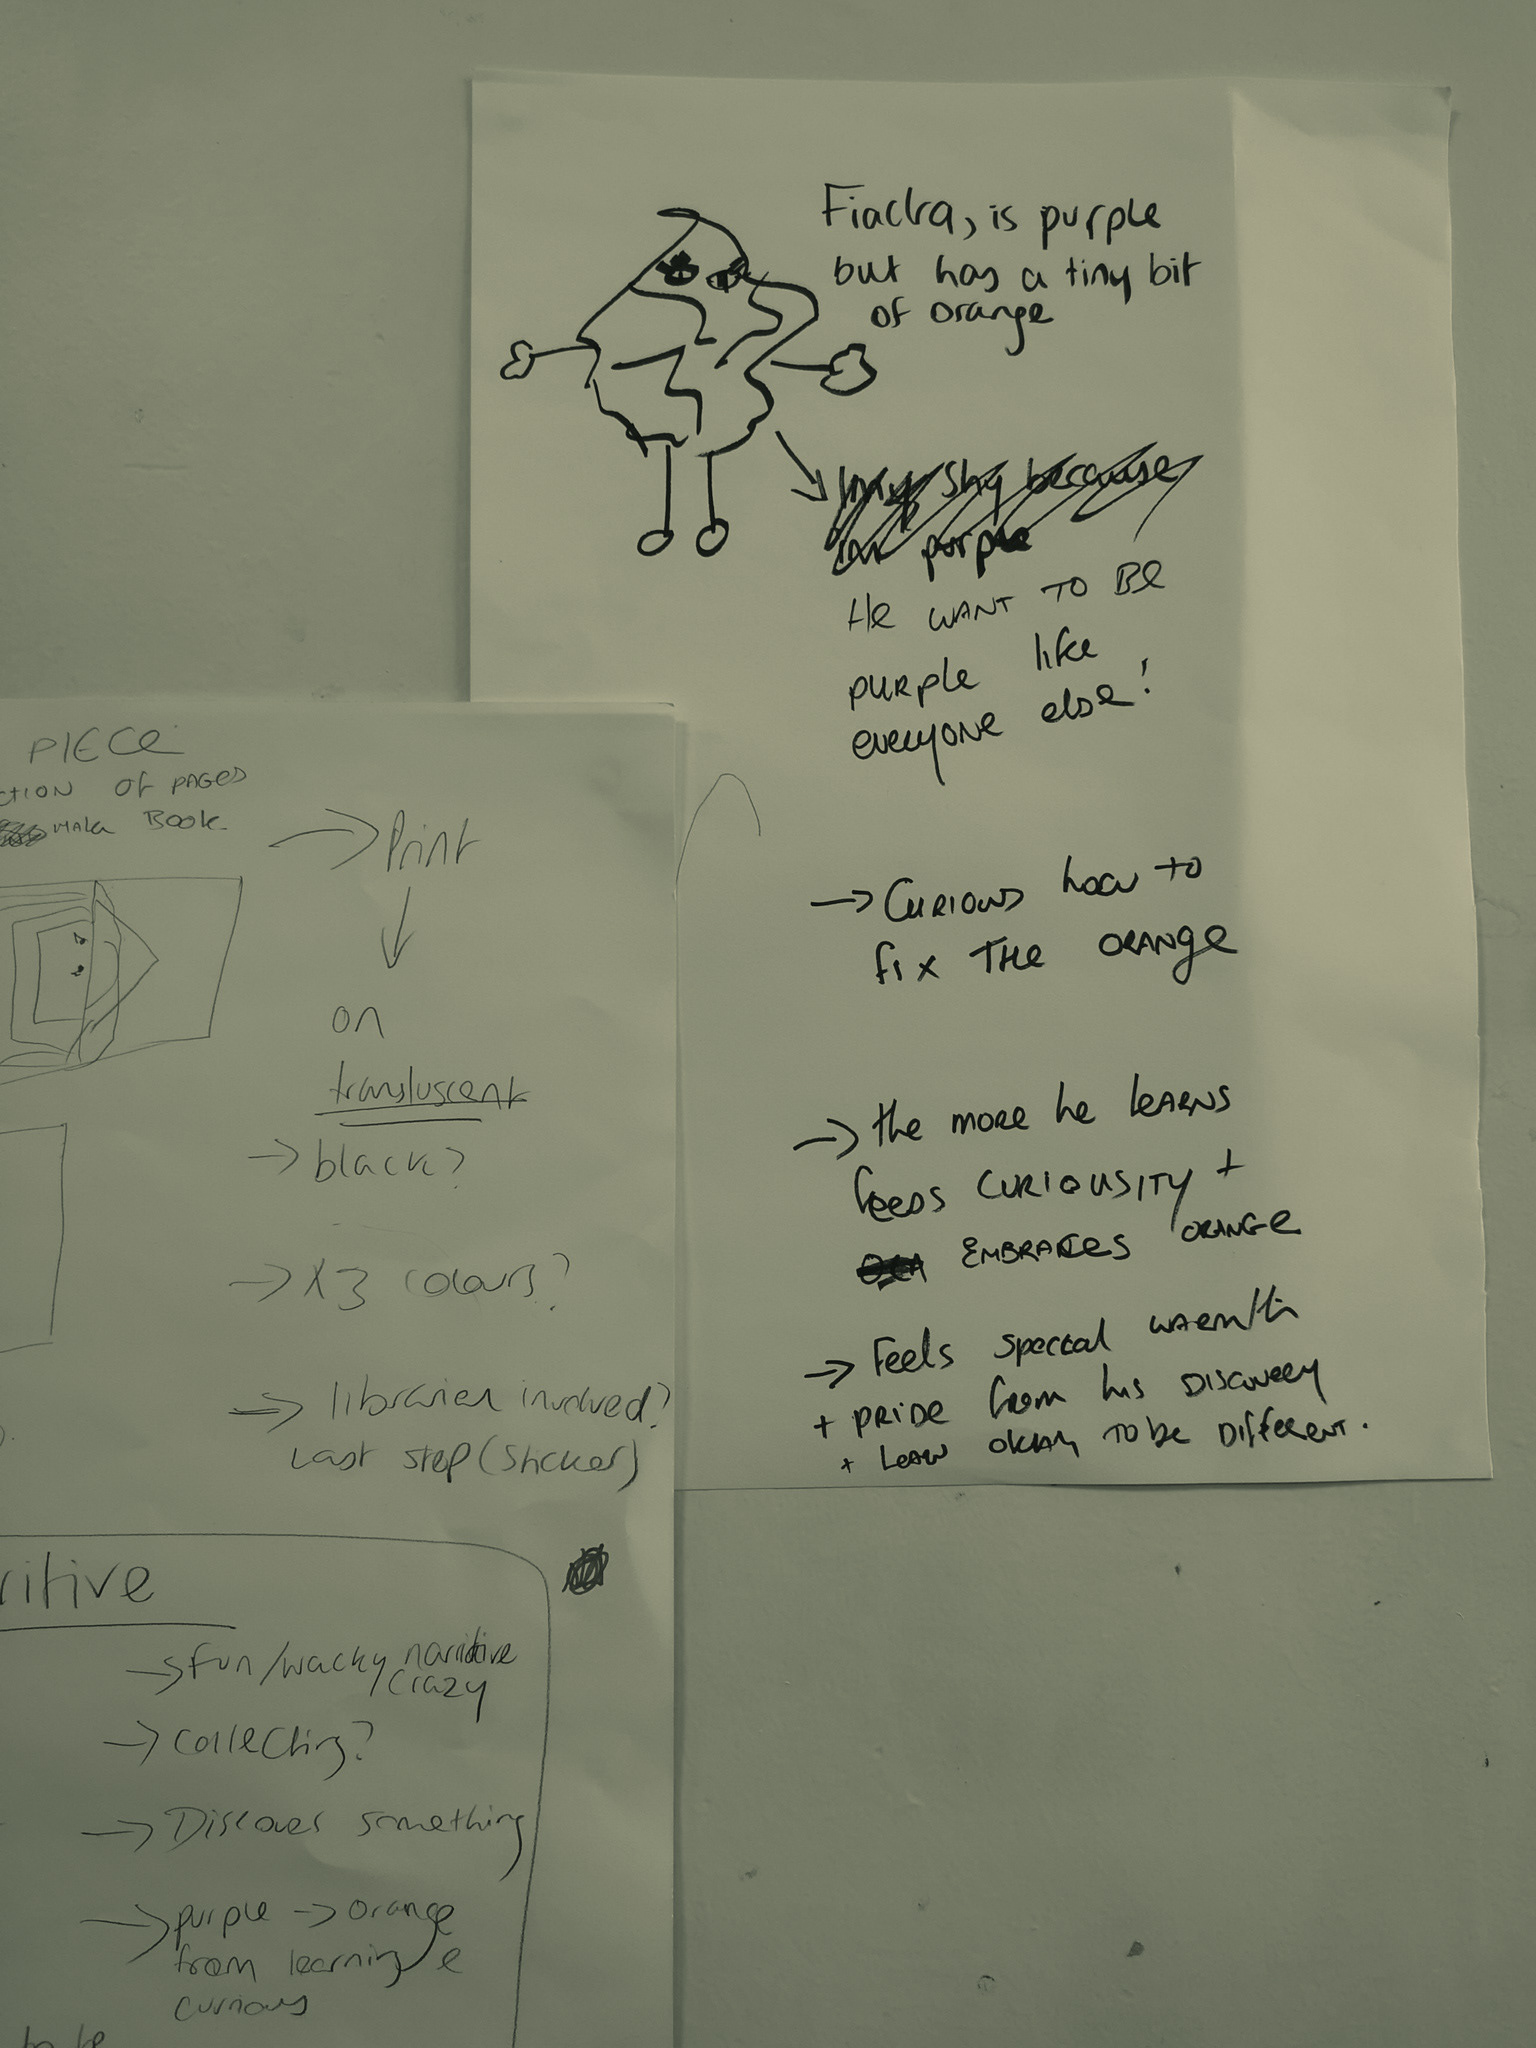 Fiachra, is purple
but has a tiny bit
of orange
shy because
purple
He WANT TO Be
purple like
everyone else!
→ Curious how to
fix THe ORANGe
→ the more he leARNS
feeds CURIOUSITY +
EMBRACes ORANGe
→ Feels special warmth
+ PRIDE from his DISCOVERY
+ Learn okay TO be Different.
PIECe
CTION Of PAGeS
Make Book
→ Print
on
transluscent
→ black?
→ X3 colours?
→ librarian involved?
Last step (sticker)
ritive
→ Fun/wacky narritive
/crazy
→ collecting?
→ Discover something
→ purple → orange
from learning e
curious
to be